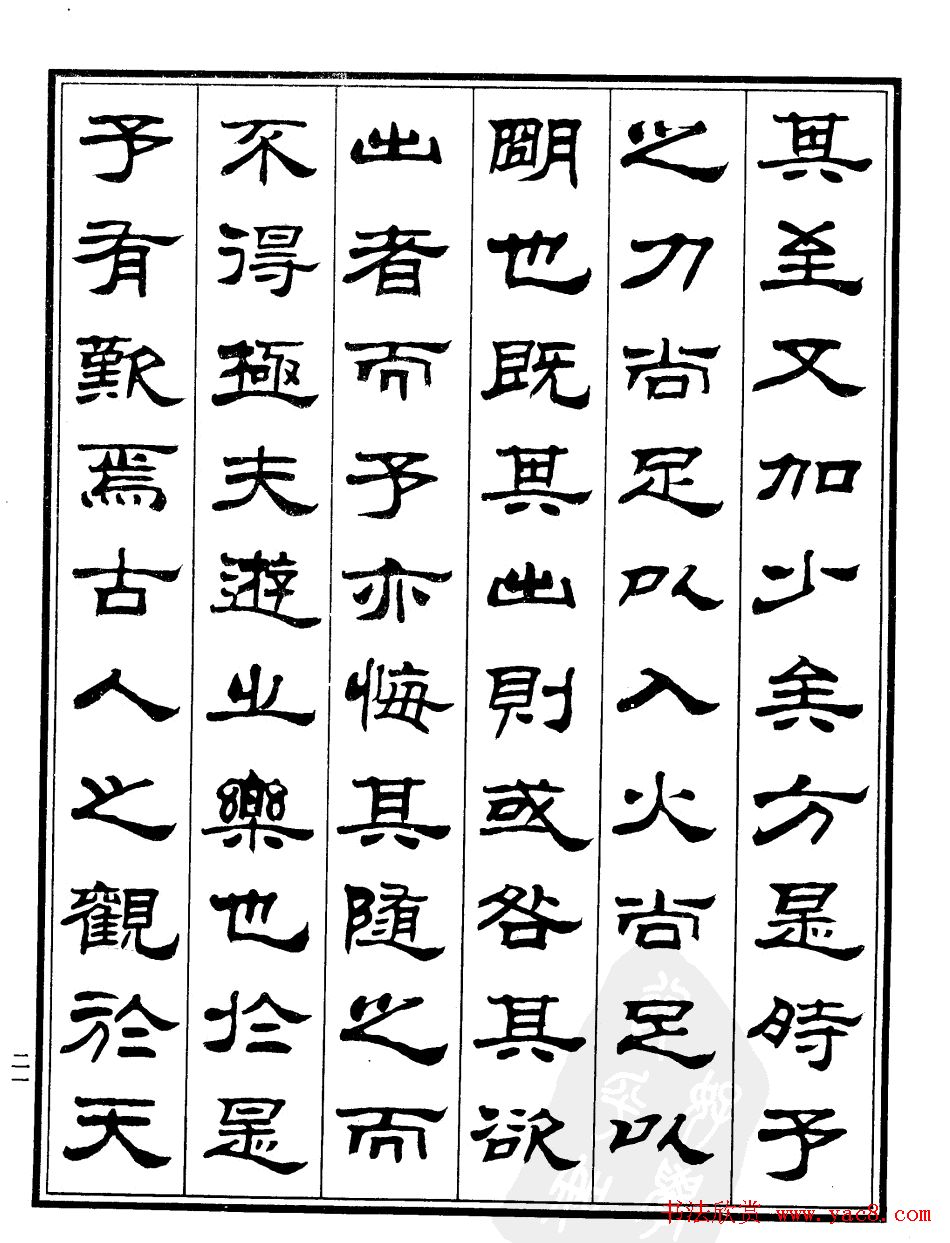 其至又加少矣方是時予
之力尚足以入火尚足以
朙也既其出則或咎其欲
出者而予亦悔其隨之而
不得極夫遊之樂也於是
予有歎焉古人之觀於天
书法欣赏 www.yac8.com